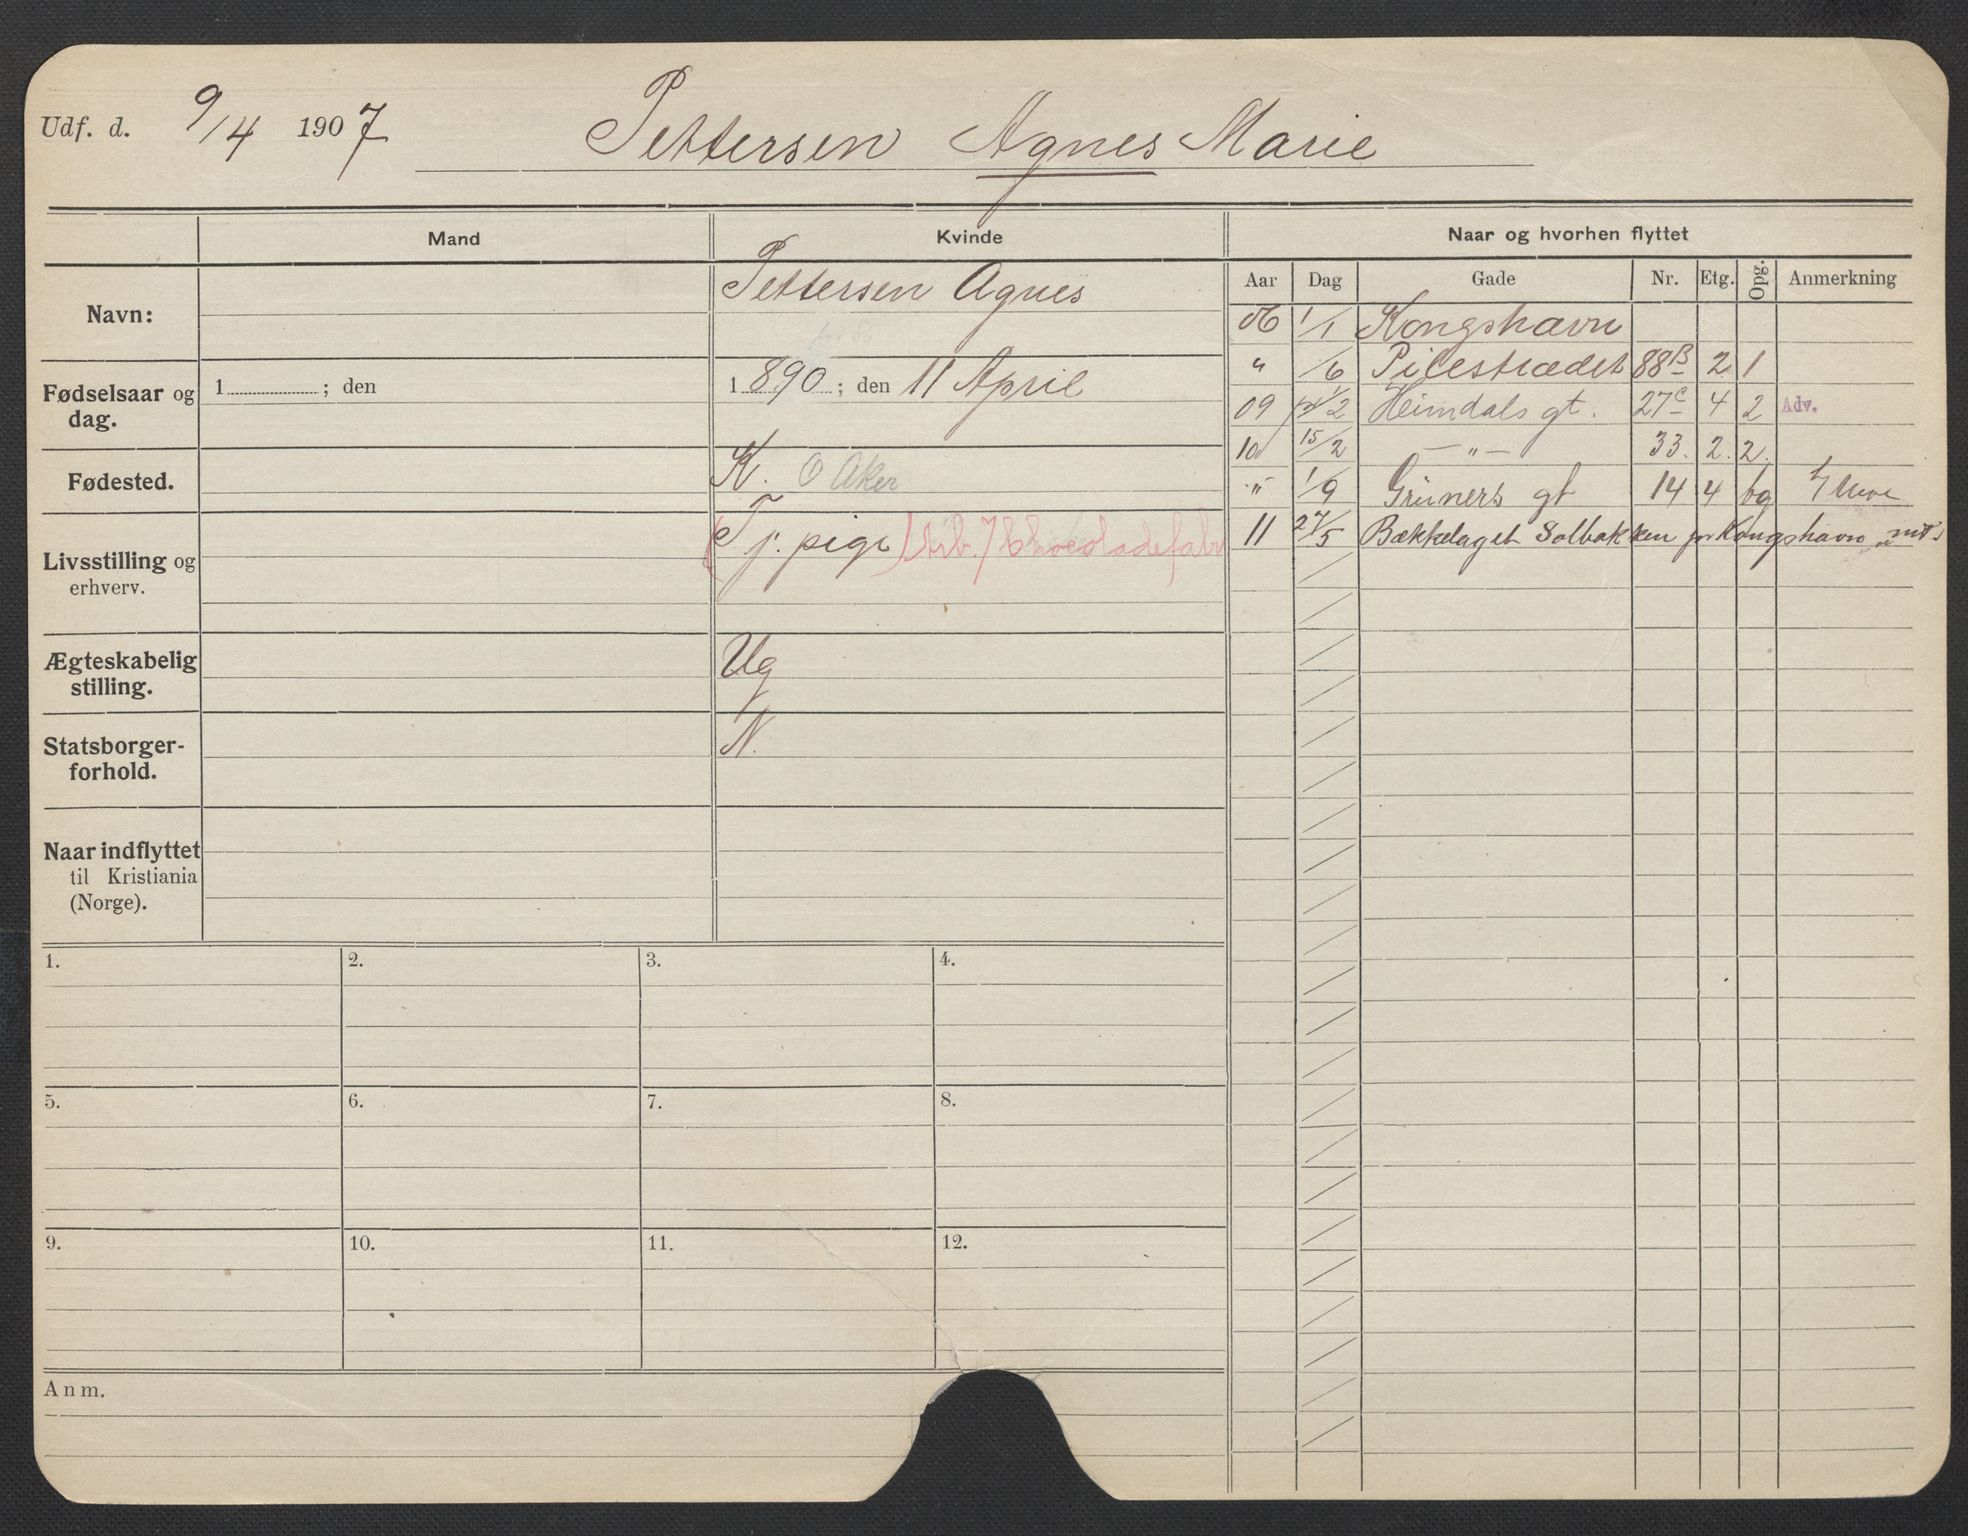 Udf. d. 9/4 1907 Pettersen Agnes Marie
Mand Kvinde Naar og hvorhen flyttet
Aar Dag Gade Nr. Etg. Opg. Anmerkning
Navn: Pettersen Agnes
Fødselsaar og dag. 1 ; den 1890 ; den 11 April
Fødested. K. Ø Aker
Livsstilling og erhverv. (Tj. pige) Arb. i Chocoladefabr
Ægteskabelig stilling. Ug
Statsborgerforhold. N.
Naar indflyttet til Kristiania (Norge).
06 1/1 Kongshavn
" /6 Pilestrædet 88B 2 1
09 1/2 Heimdals gt. 27c 4 2 Adv.
10 15/2 — " — 33. 2. 2.
" 1/9 Grüners gt 14 4 bg
11 27/5 Bækkelaget Solbakken pr Kongshavn
1. 2. 3. 4.
5. 6. 7. 8.
9. 10. 11. 12.
Anm.